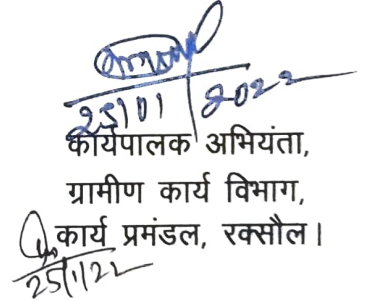 25/01/2022
कार्यपालक अभियंता,
ग्रामीण कार्य विभाग,
कार्य प्रमंडल, रक्सौल।
25/1/22